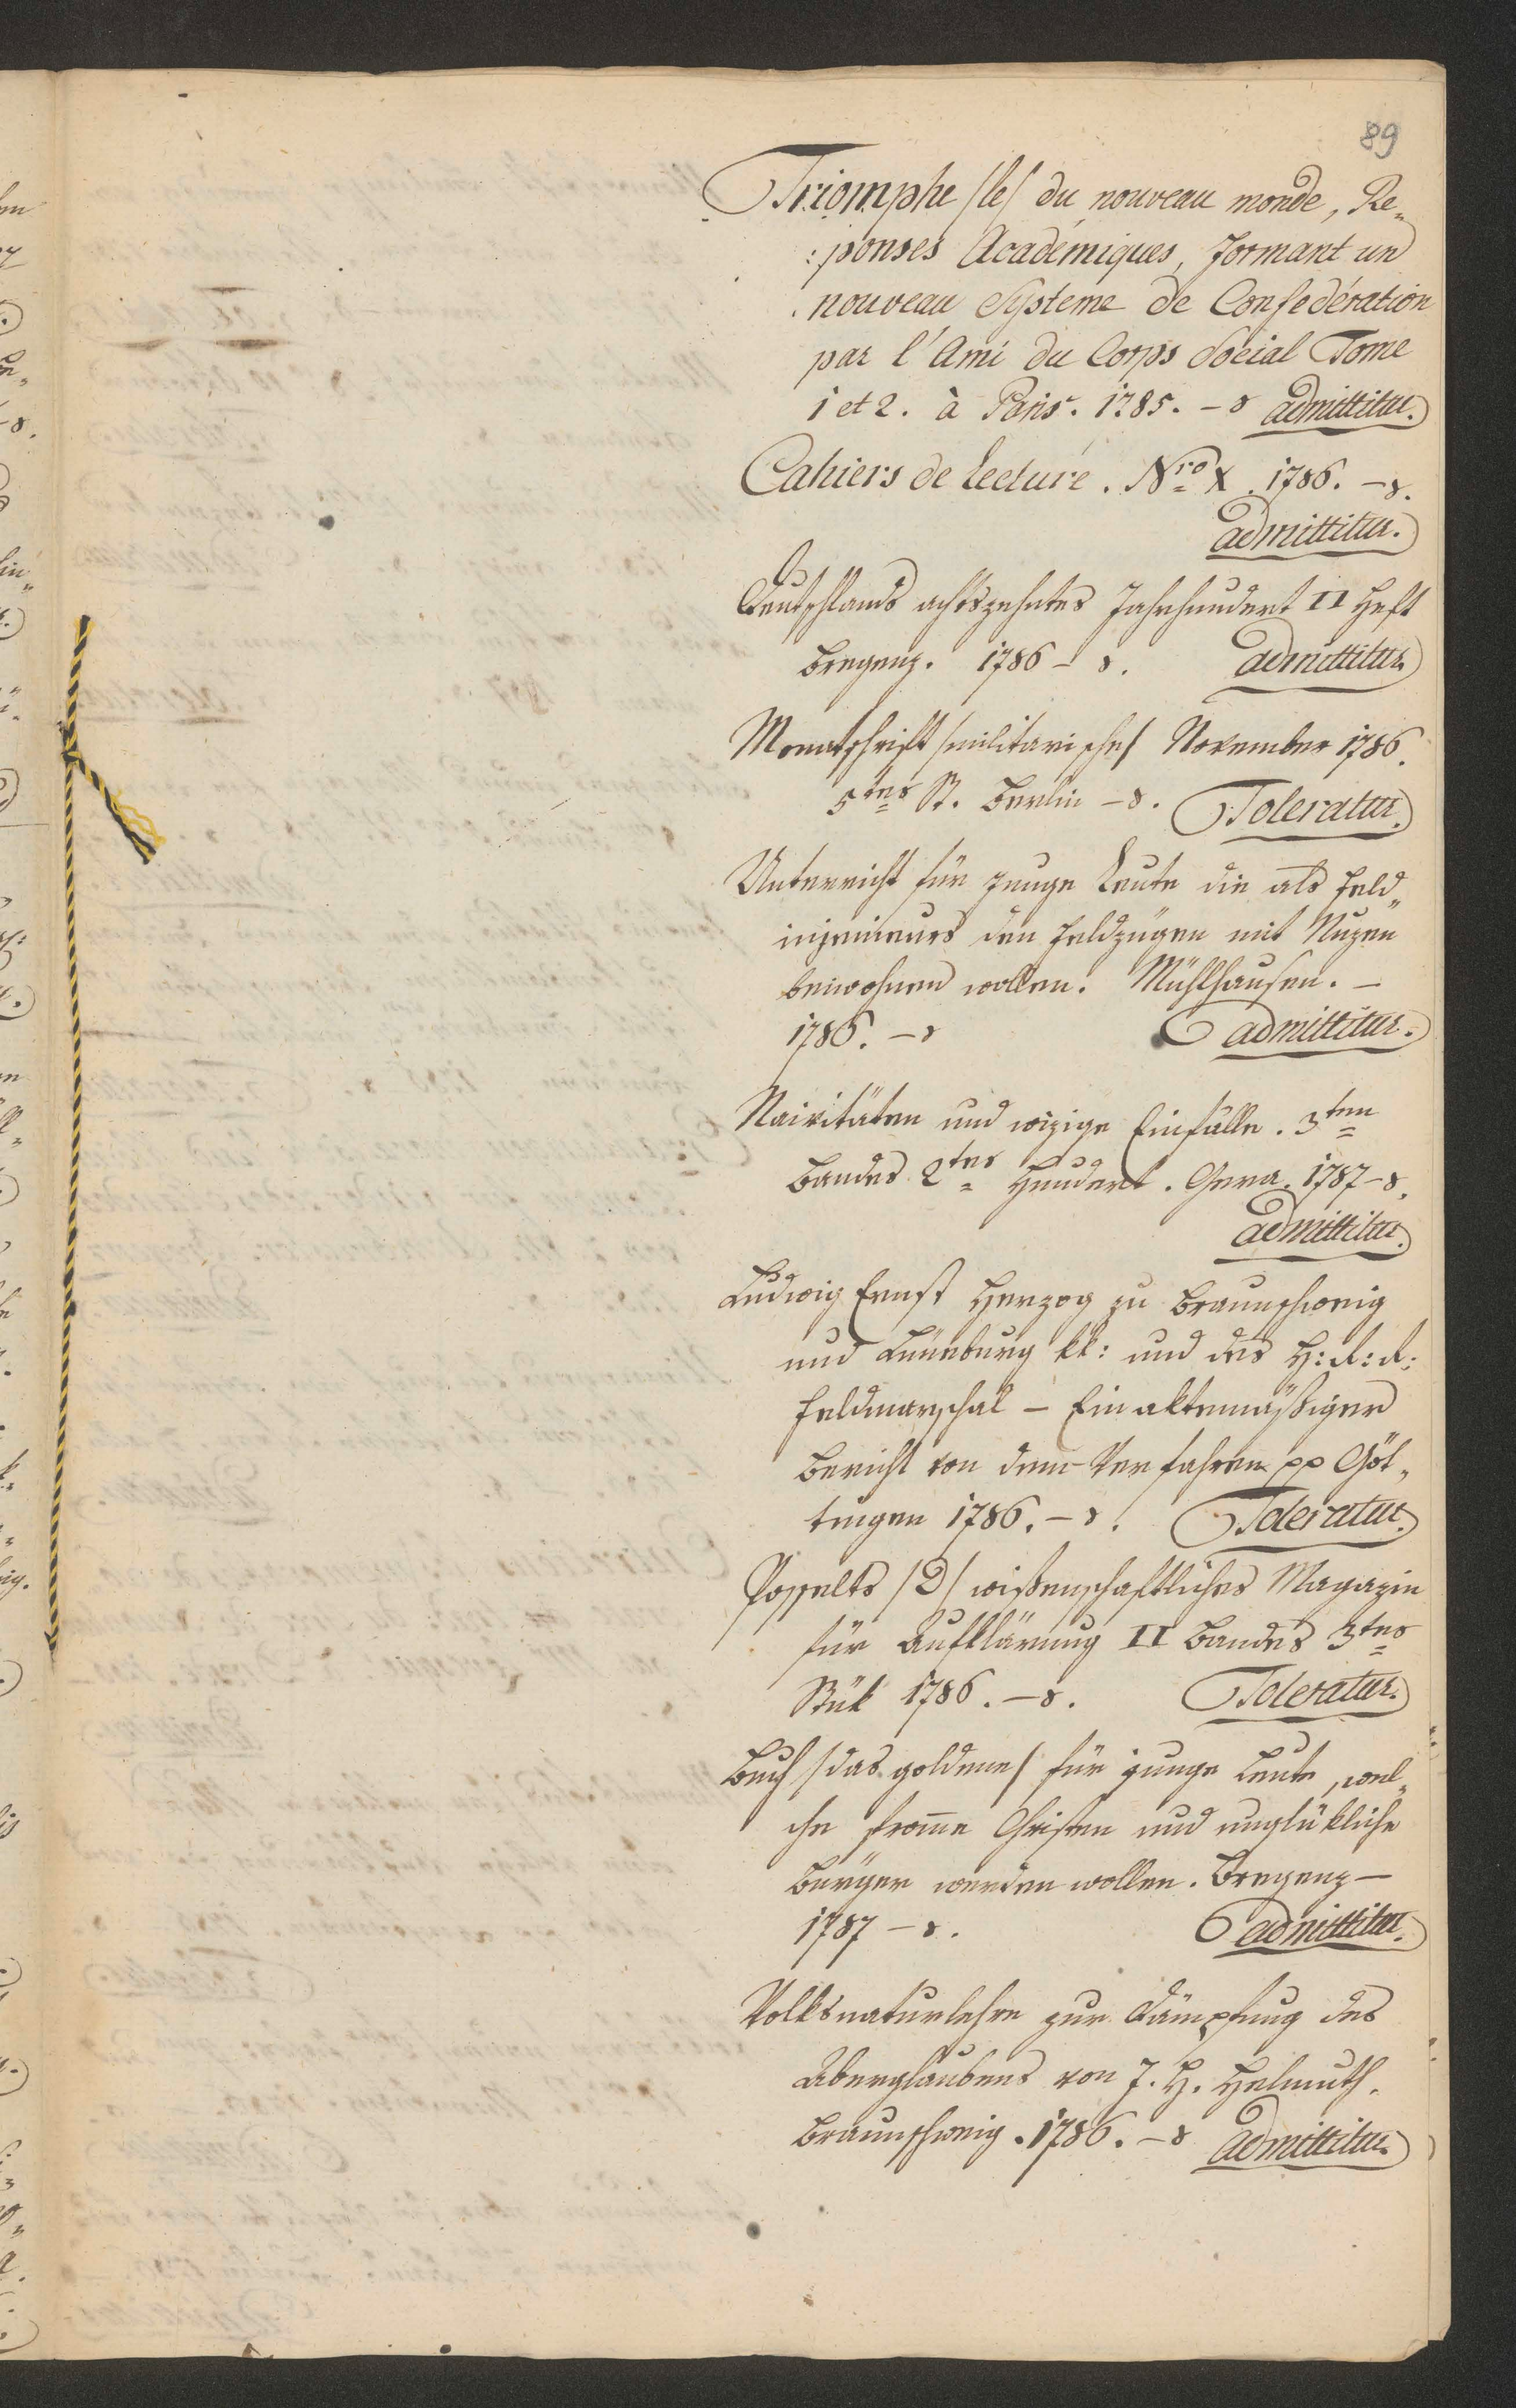 89
Triomphe /le/ du nouveau monde, Re„
:ponses Académiques, formant un
nouveau Systeme de Confedération
par l'Ami du Corps Social Tome
1 et 2. à Paris. 1785. – 8 admittitur.
Cahiers de Lecture. Nro X. 1786. – 8.
admittitur.
Deutschlands achtzehntes Jahrhundert II Heft
Bregenz. 1786 – 8. admittitur
Monatschrift /militarische/ November 1786.
5tes St. Berlin – 8. Toleratur.
Unterricht für junge Leute die als Feld„
injenieurs den Feldzügen mit Nuzen
beiwohnen wollen. Mühlhausen. –
1786. – 8 admittitur.
Naivitäten und wizige Einfälle. 3ten
Bandes 2tes Hundert. Gera. 1787 – 8.
admittitur.
Ludwig Ernst Herzog zu Braunschweig
und Lüneburg kk: und des H: R: R:
Feldmarschal – Ein aktenmäßiger
Bericht von dem Verfahren pp Göt„
tingen 1786. – 8. Toleratur.
Posselts /D/ wißenschaftliches Magazin
für Aufklärung II Bandes 3tes
Stük 1786. – 8. Toleratur.
Buch /das goldene/ für junge Leute, wel„
che from̄e Christen und unglükliche
Bürger werden wollen. Bregenz –
1787 – 8. admittitur.
Volksnaturlehre zur Dämpfung des
Aberglaubens von J. H. Helmuth.
Braunschweig. 1786. – 8 admittitur.